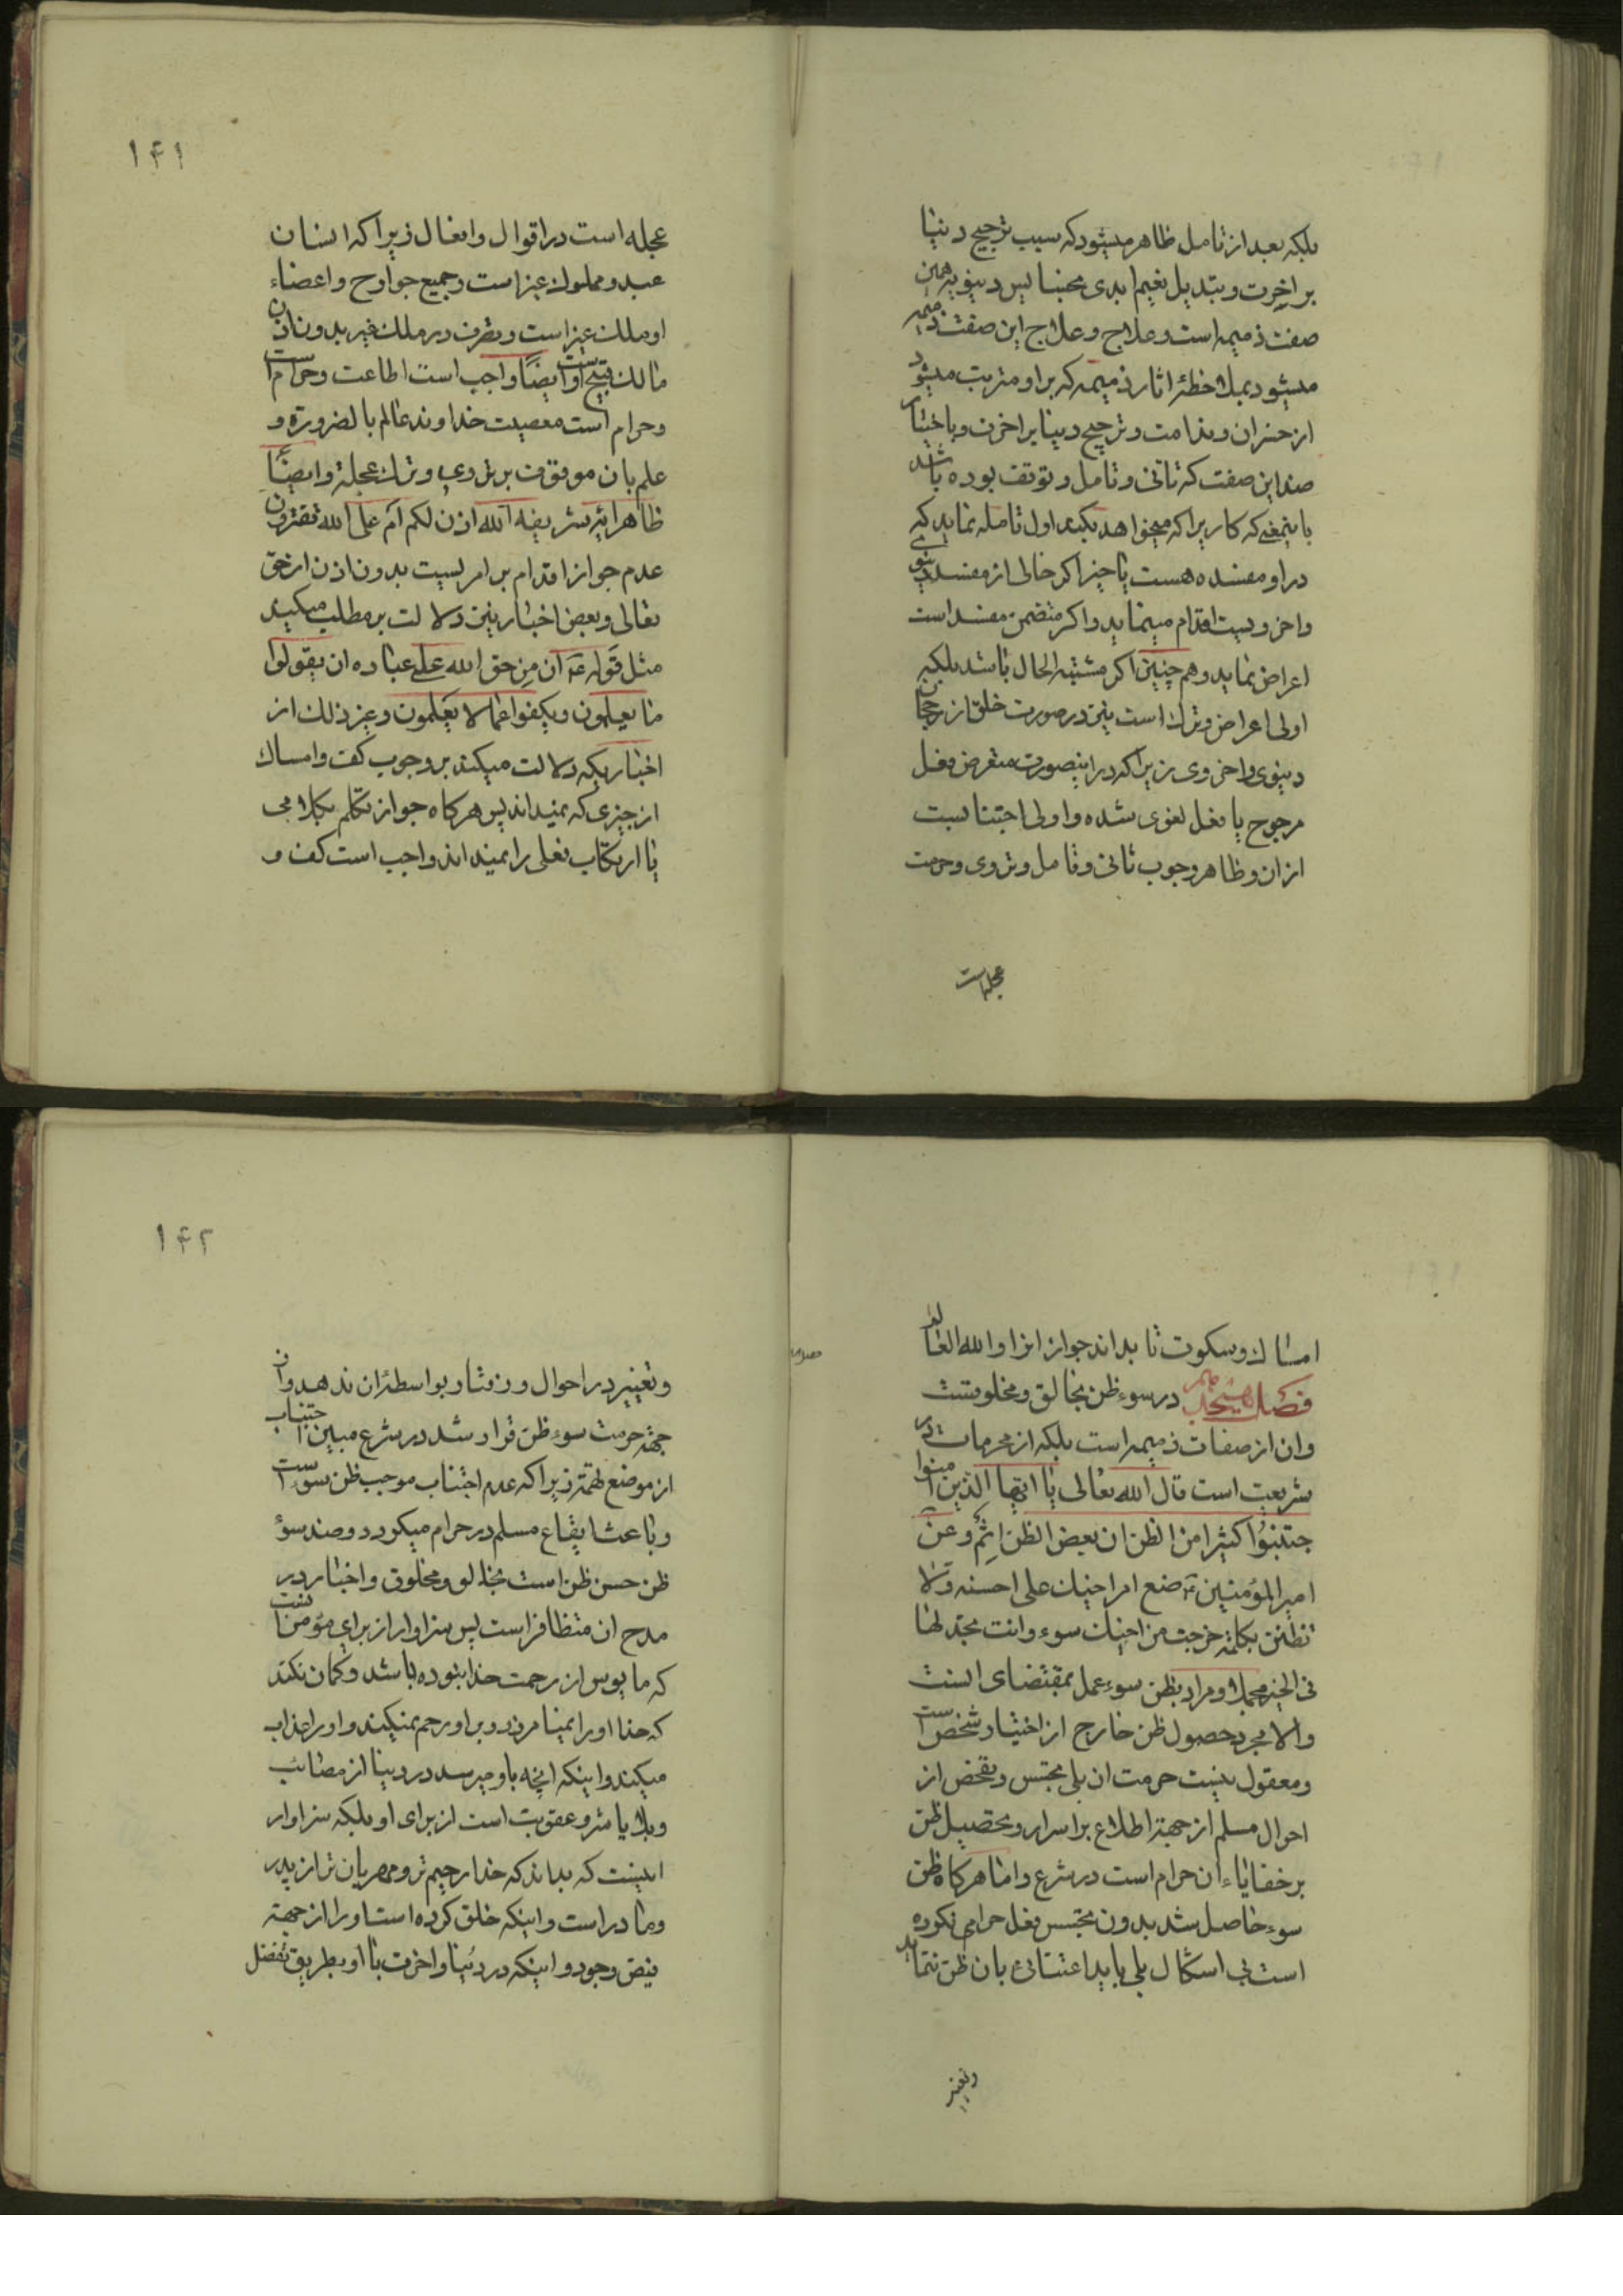 بلکه بعد از تامل ظاهر میشود که سبب ترجیح دنیا
بر اخرت و تبدیل نعیم ابدی بخسایس دنیویه همین
صفت ذمیمه است و علاج و علاج این صفت ذمیمه
میشود بملاحظهٔ اثار ذمیمه که بر او مترتب میشود
از خسران و ندامت و ترجیح دنیا بر اخرت و باختیار
ضد این صفت که تانی و تامل و توقف بوده باشد
باینمعنی که کاریرا که میخواهد بکند اول تامله نماید که
در او مفسده هست یا چیز اکر خالی از مفسده دنیوی
و اخرویست اقدام مینماید و اکر متضمن مفسد است
اعراض نماید و هم چنین اکر مشتبه الحال باشد بلکه
اولی اعراض و ترک است یقین در صورت خلو از رجحان
دینوی و اخروی زیرا که در اینصورت متعرض فعل
مرجوح یا فعل لغوی شده و اولی اجتنابست
از ان و ظاهر وجوب تانی و تامل و تروی و حرمت
عجله است
۱۴۱
عجله است در اقوال و افعال زیرا که انسان
عبد و مملوک غیر است و جمیع جوارح و اعضاء
او ملک غیر است و تصرف در ملک غیر بدون اذن
مالک قبیح است و ایضًا واجب است اطاعت و حرام است
و حرام است معصیت خداوند عالم بالضرورة و
علم بان موقوف بر تروی و ترک عجلة و ایضًا
ظاهر ایه شریفه آلله اذن لکم ام علی الله تفترون
عدم جواز اقدام بر امریست بدون اذن از حق
تعالی و بعض اخبار نیز دلالت بر مطلب میکند
مثل قوله عه ان من حق الله علی عباده ان یقولوا
ما یعلمون و یکفوا عما لا یعلمون و غیر ذلک از
اخباریکه دلالت میکند بر وجوب کف و امساک
از چیزی که نمیداند پس هرکاه جواز تکلم بکلامی
یا ارتکاب فعلی را نمیداند واجب است کف و
امساک و سکوت تا بداند جواز انرا و الله العالم
فصل هیجدهم در سوء ظن بخالق و مخلوقست
و ان از صفات ذمیمه است بلکه از محرمات در
شریعت است قال الله تعالی یا ایها الذین امنوا
جتنبوا کثیرا من الظن ان بعض الظن اثم و عن
امیر المؤمنین ع ضع امر اخیک علی احسنه و لا
تظنن بکلمة خرجت من اخیک سوء و انت تجد لها
فی الخیر محملا و مراد بظن سوء عمل بمقتضای انست
و الا مجرد حصول ظن خارج از اختیار شخص است
و معقول نیست حرمت ان بلی تجسس و تفحص از
احوال مسلم از جهة اطلاع بر اسرار و تحصیل ظن
بر خفایاء ان حرام است در شرع و اما هرکاه ظن
سوء حاصل شد بدون تجسس فعل حرامی نکرده
است بی اشکال بلی باید اعتنائی بان ظن ننماید
و تغییر
۱۴۲
و تغییر در احوال و رفتار بواسطهٔ ان ندهد و از
جهة حرمت سوء ظن قرار شد در شرع مبین اجتناب
از موضع تهمة زیرا که عدم اجتناب موجب ظن سوء است
و باعث ایقاع مسلم در حرام میکردد و ضد سوء
ظن حسن ظن است بخالق و مخلوق و اخبار در
مدح ان متظافر است پس سزاوار از برای مؤمن انست
که مایوس از رحمت خدا نبوده باشد و کمان نکند
که خدا او را نمیامرزد و بر او رحم نمیکند و او را عذاب
میکند و اینکه انچه باو میرسد در دنیا از مصائب
و بلایا شر و عقوبت است از برای او بلکه سزاوار
اینست که بداند که خدا رحیم تر و مهربان تر از پدر
و مادر است و اینکه خلق کرده است او را از جهة
فیض وجود و اینکه در دنیا و اخرت با او بطریق تفضل